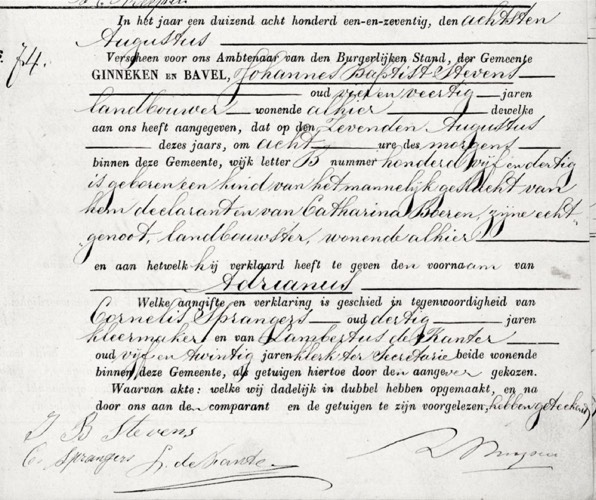 In hèt jaar een duizend acht honderd een-en-zeventig, den achtsten
Augustus
74.
Verscheen voor ons Ambtenaar van den Burgerlijken Stand, der Gemeente
GINNEKEN EN BAVEL, Johannes Baptist Stevens
oud vijf en veertig jaren
landbouwer wonende alhier dewelke
aan ons heeft aangegeven, dat op den Zevenden Augustus
dezes jaars, om acht ure des morgens
binnen deze Gemeente, wijk letter B nummer honderd vijf en dertig
is geboren een kind van het mannelijk geslacht van
hem declarant en van Catharina Boeren, zijne echt-
genoot, landbouwster, wonende alhier
en aan hetwelk hij verklaard heeft te geven den voornaam van
Adrianus
Welke aangifte en verklaring is geschied in tegenwoordigheid van
Cornelis Sprangers oud dertig jaren
kleermaker en van Lambertus de Kanter
oud vijf en twintig jaren klerk ter Secretarie beide wonende
binnen deze Gemeente, als getuigen hiertoe door den aangever gekozen.
Waarvan akte: welke wij dadelijk in dubbel hebben opgemaakt, en na
door ons aan den comparant en de getuigen te zijn voorgelezen, hebben geteekend
J B Stevens
Cs Sprangers L. de Kanter